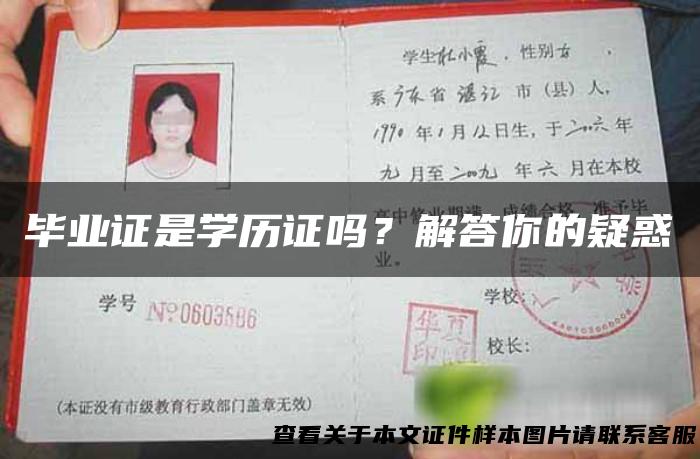 学生杜小霞，性别女，
系广东省湛江市（县）人，
1990年1月12日生，于二〇〇六年
九月至二〇〇九年六月在本校
高中修业期满，成绩合格，准予毕
业。
毕业证是学历证吗？解答你的疑惑
学校：
学号 №0603586
华夏
校长：
印
（本证没有市级教育行政部门盖章无效）
查看关于本文证件样本图片请联系客服